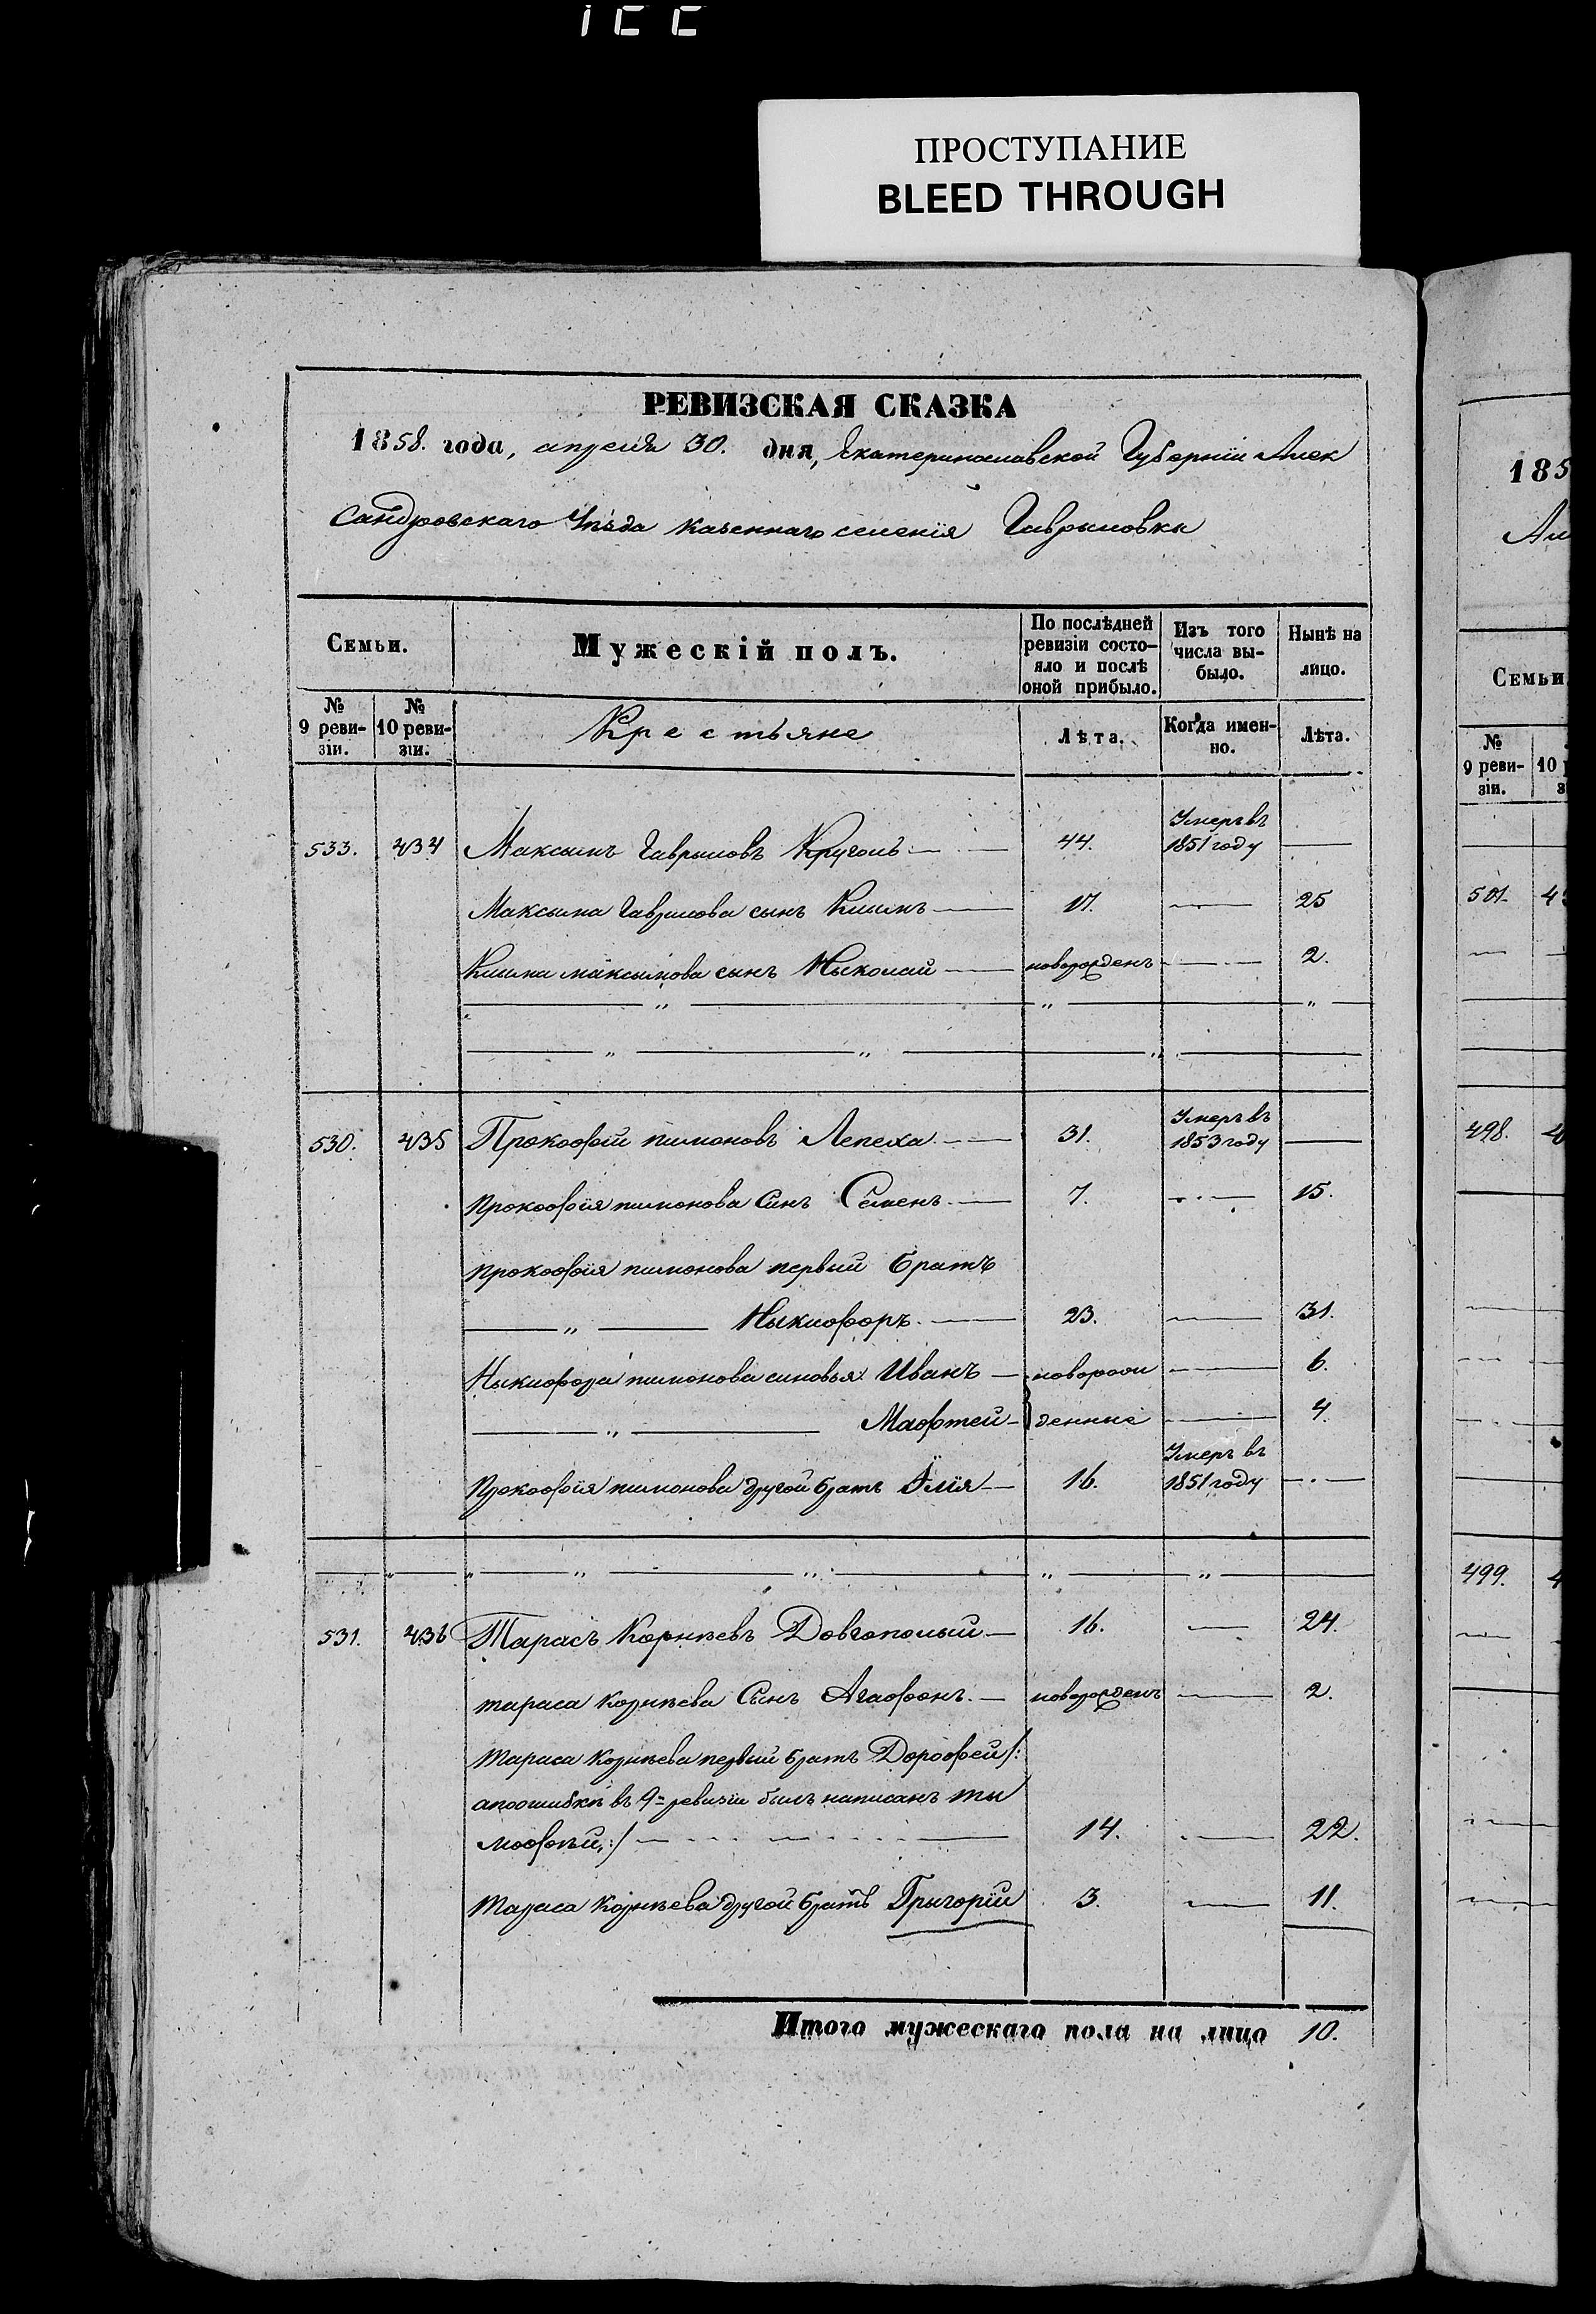 ПРОСТУПАНИЕ
BLEED THROUGH
РЕВИЗСКАЯ СКАЗКА
1858. года, апреля 30. дня, Екатеринославской Губернiи Алек
сандровскаго Уѣзда казеннаго селенiя Гаврыловки
Семьи. Мужескiй полъ. По послѣдней ревизiи состо-яло и послѣ оной прибыло. Изъ того числа вы-было. Нынѣ на лицо.
№ 9 реви-зiи. № 10 реви-зiи. Крестьяне Лѣта. Когда имен-но. Лѣта.
533. 434 Максымъ Гаврыловъ Кругольъ 44. Умеръ въ 1851 году
Максыма Гаврилова сынъ Климъ 17. 25
Клима максымова сынъ Ныколай новорожденъ 2.
530. 435 Прокофiй пимоновъ Лепеха 31. Умеръ въ 1853 году
прокофiя пимонова Синъ Семенъ 7. 15.
прокофiя пимонова первый братъ
Ныкифоръ. 23. 31.
Ныкифора пимонова синовья Иванъ новорож 6.
Мафтей денные 4.
Прокофiя пимонова другой братъ Илiя 16. Умеръ въ 1851 году
531. 436 Тарасъ Корнѣевъ Довгополый 16. 24.
тараса Корнѣева Сынъ Агафонъ. новорожденъ 2.
тараса Корнѣева первый братъ Дорофей/:
апоошибкѣ въ 9й ревизiи былъ написанъ ты
мофѣй:/ 14. 22.
тараса Корнѣева другой братъ Грыгорiй 3. 11.
Итого мужескаго пола на лицо 10.
185
Ал
Семьи
№ 9 реви-зiи. 10
501. 4
498. 4
499. 4